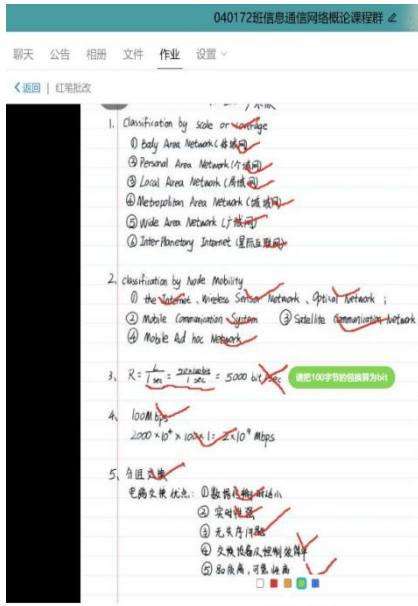 040172班信息通信网络概论课程群
聊天 公告 相册 文件 作业 设置
返回 | 红笔批改
1. Classification by scale or coverage
① Body Area Network (体域网)
② Personal Area Network (个域网)
③ Local Area Network (局域网)
④ Metropolitan Area Network (城域网)
⑤ Wide Area Network (广域网)
⑥ InterPlanetary Internet (星际互联网)
2. classification by Node Mobility
① the Internet、Wireless Sensor Network、Optical Network ;
② Mobile Communication System ③ Satellite Communication Network
④ Mobile Ad hoc Network
3、 R = L / 1 sec = / 1 sec = 5000 bit/sec 请把100字节的包换算为bit
4、 100Mbps
2000×10⁴×100×1 = 2×10⁴ Mbps
5、分组交换
电路交换优点: ①数据传输时延小
② 实时性强
③ 无失序问题
④ 交换设备及控制简单
⑤ 质高,可靠性高